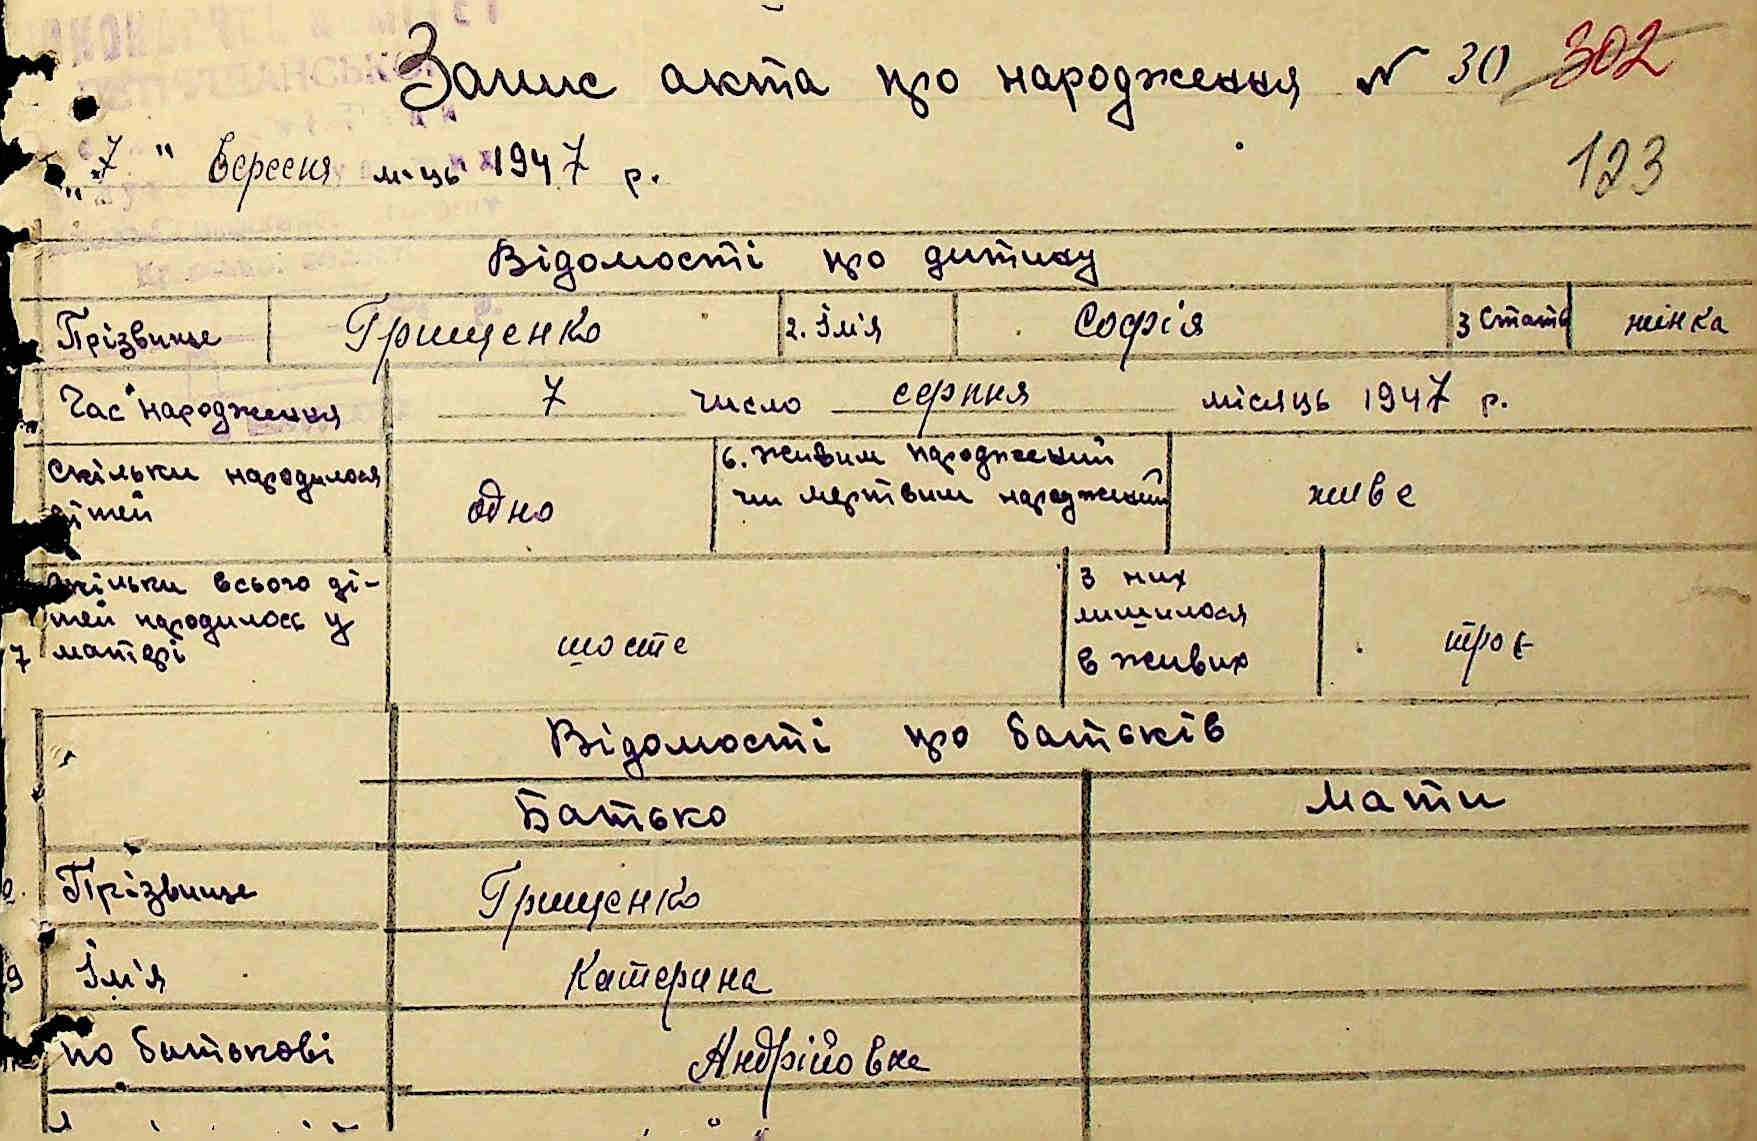 Запис акта про народження № 30 302
„7" Вересня м-ць 1947 р.
123
Відомості про дитину
Прізвище Грищенко 2. Ім'я Софія 3 Стать жінка
Час народження 7 число серпня місяць 1947 р.
скільки народилося 6. Живим народжений
дітей одно чи мертвим народжений живе
скільки всього ді- З них
тей народилось у шосте лишилося троє
7 матері в живих
Відомості про батьків
Батько Мати
Прізвище Грищенко
9 Ім'я Катерина
по батькові Андрійовна